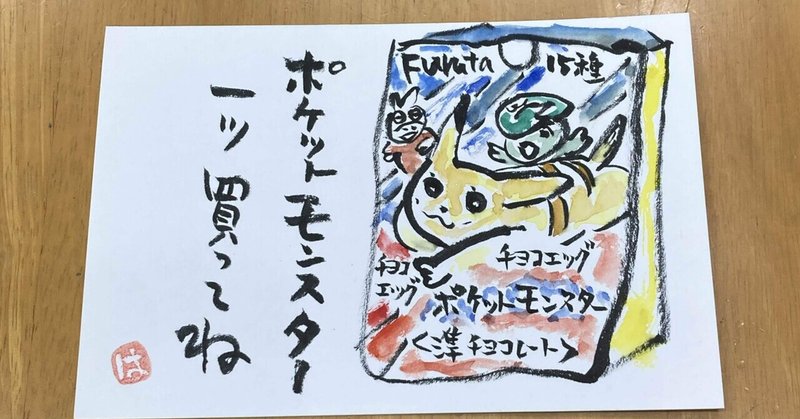 ポケットモンスター
一ツ買ってね
は
Furuta 15種
チョコ
エッグ
チョコエッグ
ポケットモンスター
<準チョコレート>